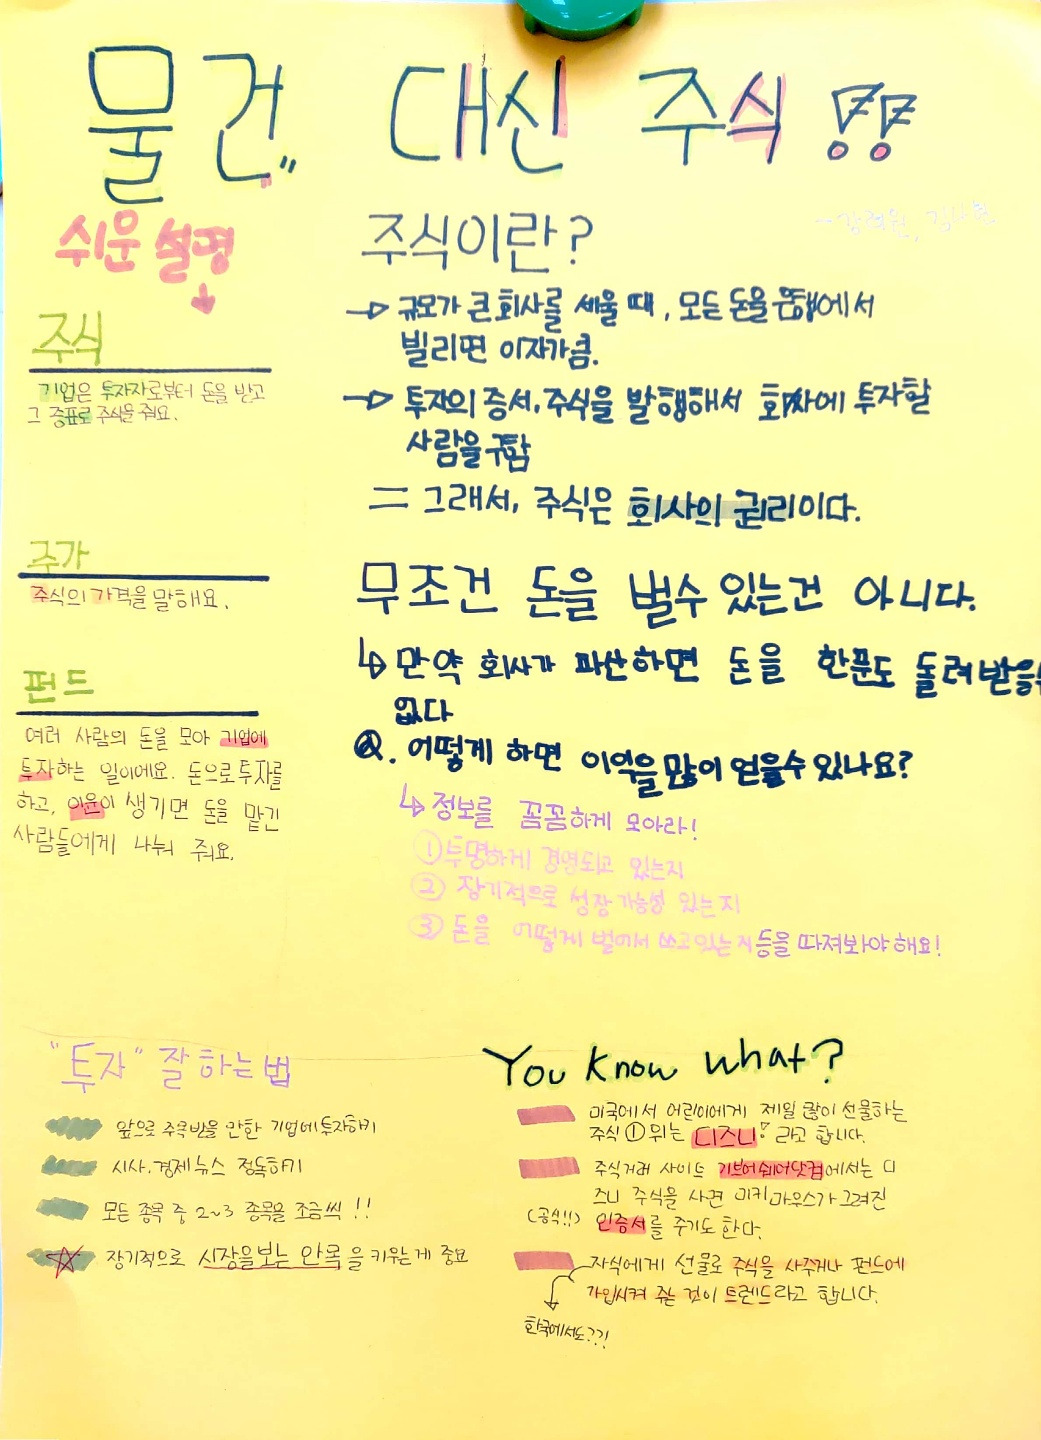 물건" 대신 주식!!
쉬운 설명
주식
기업은 투자자로부터 돈을 받고
그 증표로 주식을 줘요.
주가
주식의 가격을 말해요.
펀드
여러 사람의 돈을 모아 기업에
투자하는 일이에요. 돈으로 투자를
하고, 이윤이 생기면 돈을 맡긴
사람들에게 나눠 줘요.
주식이란?
→ 규모가 큰 회사를 세울 때, 모든 돈을 은행에서
빌리면 이자가 큼.
→ 투자의 증서, 주식을 발행해서 회사에 투자할
사람을 구함
= 그래서, 주식은 회사의 권리이다.
무조건 돈을 벌수 있는건 아니다.
↳ 만약 회사가 파산하면 돈을 한푼도 돌려받을수
없다
Q. 어떻게 하면 이익을 많이 얻을수 있나요?
↳ 정보를 꼼꼼하게 모아라!
① 투명하게 경영되고 있는지
② 장기적으로 성장 가능성 있는지
③ 돈을 어떻게 벌어서 쓰고있는지 등을 따져보아야 해요!
"투자" 잘 하는 법
앞으로 주목받을 만한 기업에 투자하기
시사, 경제 뉴스 정독하기
모든 종목 중 2~3 종목을 조금씩!!
장기적으로 시장을 보는 안목을 키우는게 중요
You Know what?
미국에서 어린이에게 제일 많이 선물하는
주식 ①위는 디즈니! 라고 합니다.
주식거래 사이트 기브어쉐어닷컴에서는 디
즈니 주식을 사면 미키마우스가 그려진
(공식!!) 인증서를 주기도 한다.
자식에게 선물로 주식을 사주거나 펀드에
가입시켜 주는 것이 트렌드라고 합니다.
한국에서도??!